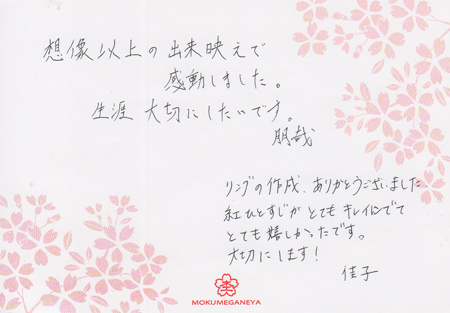 想像以上の出来映えで
感動しました。
生涯 大切にしたいです。
朋哉
リングの作成、ありがとうございました
紅ひとすじが とても キレイにでて
とても嬉しかったです。
大切にします！
佳子
MOKUMEGANEYA